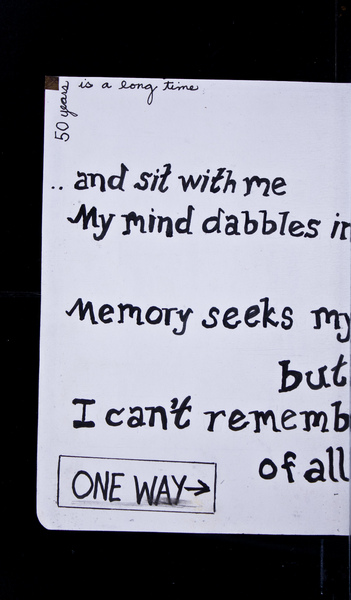 50 years is a long time
.. and sit with me
My mind dabbles in
Memory seeks my
but
I can't rememb
of all
ONE WAY→